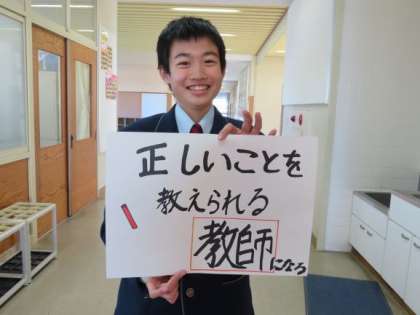 正しいことを
教えられる
教師になろ